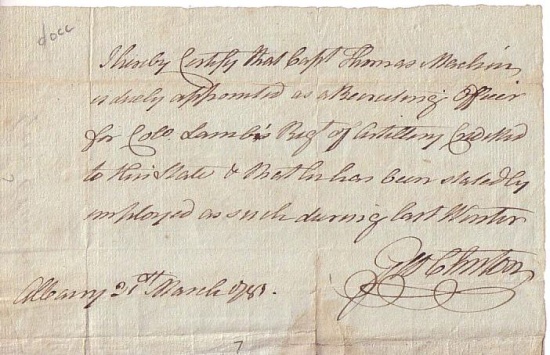 docc
I hereby Certify that Capt Thomas Machin
is duely appointed as a Recruiting Officer
for Colo. Lamb's Regt of Artillery Credited
to this State & that he has been stated by
employed as such during last Winter
Geo Clinton
Albany 31st March 1781.
7